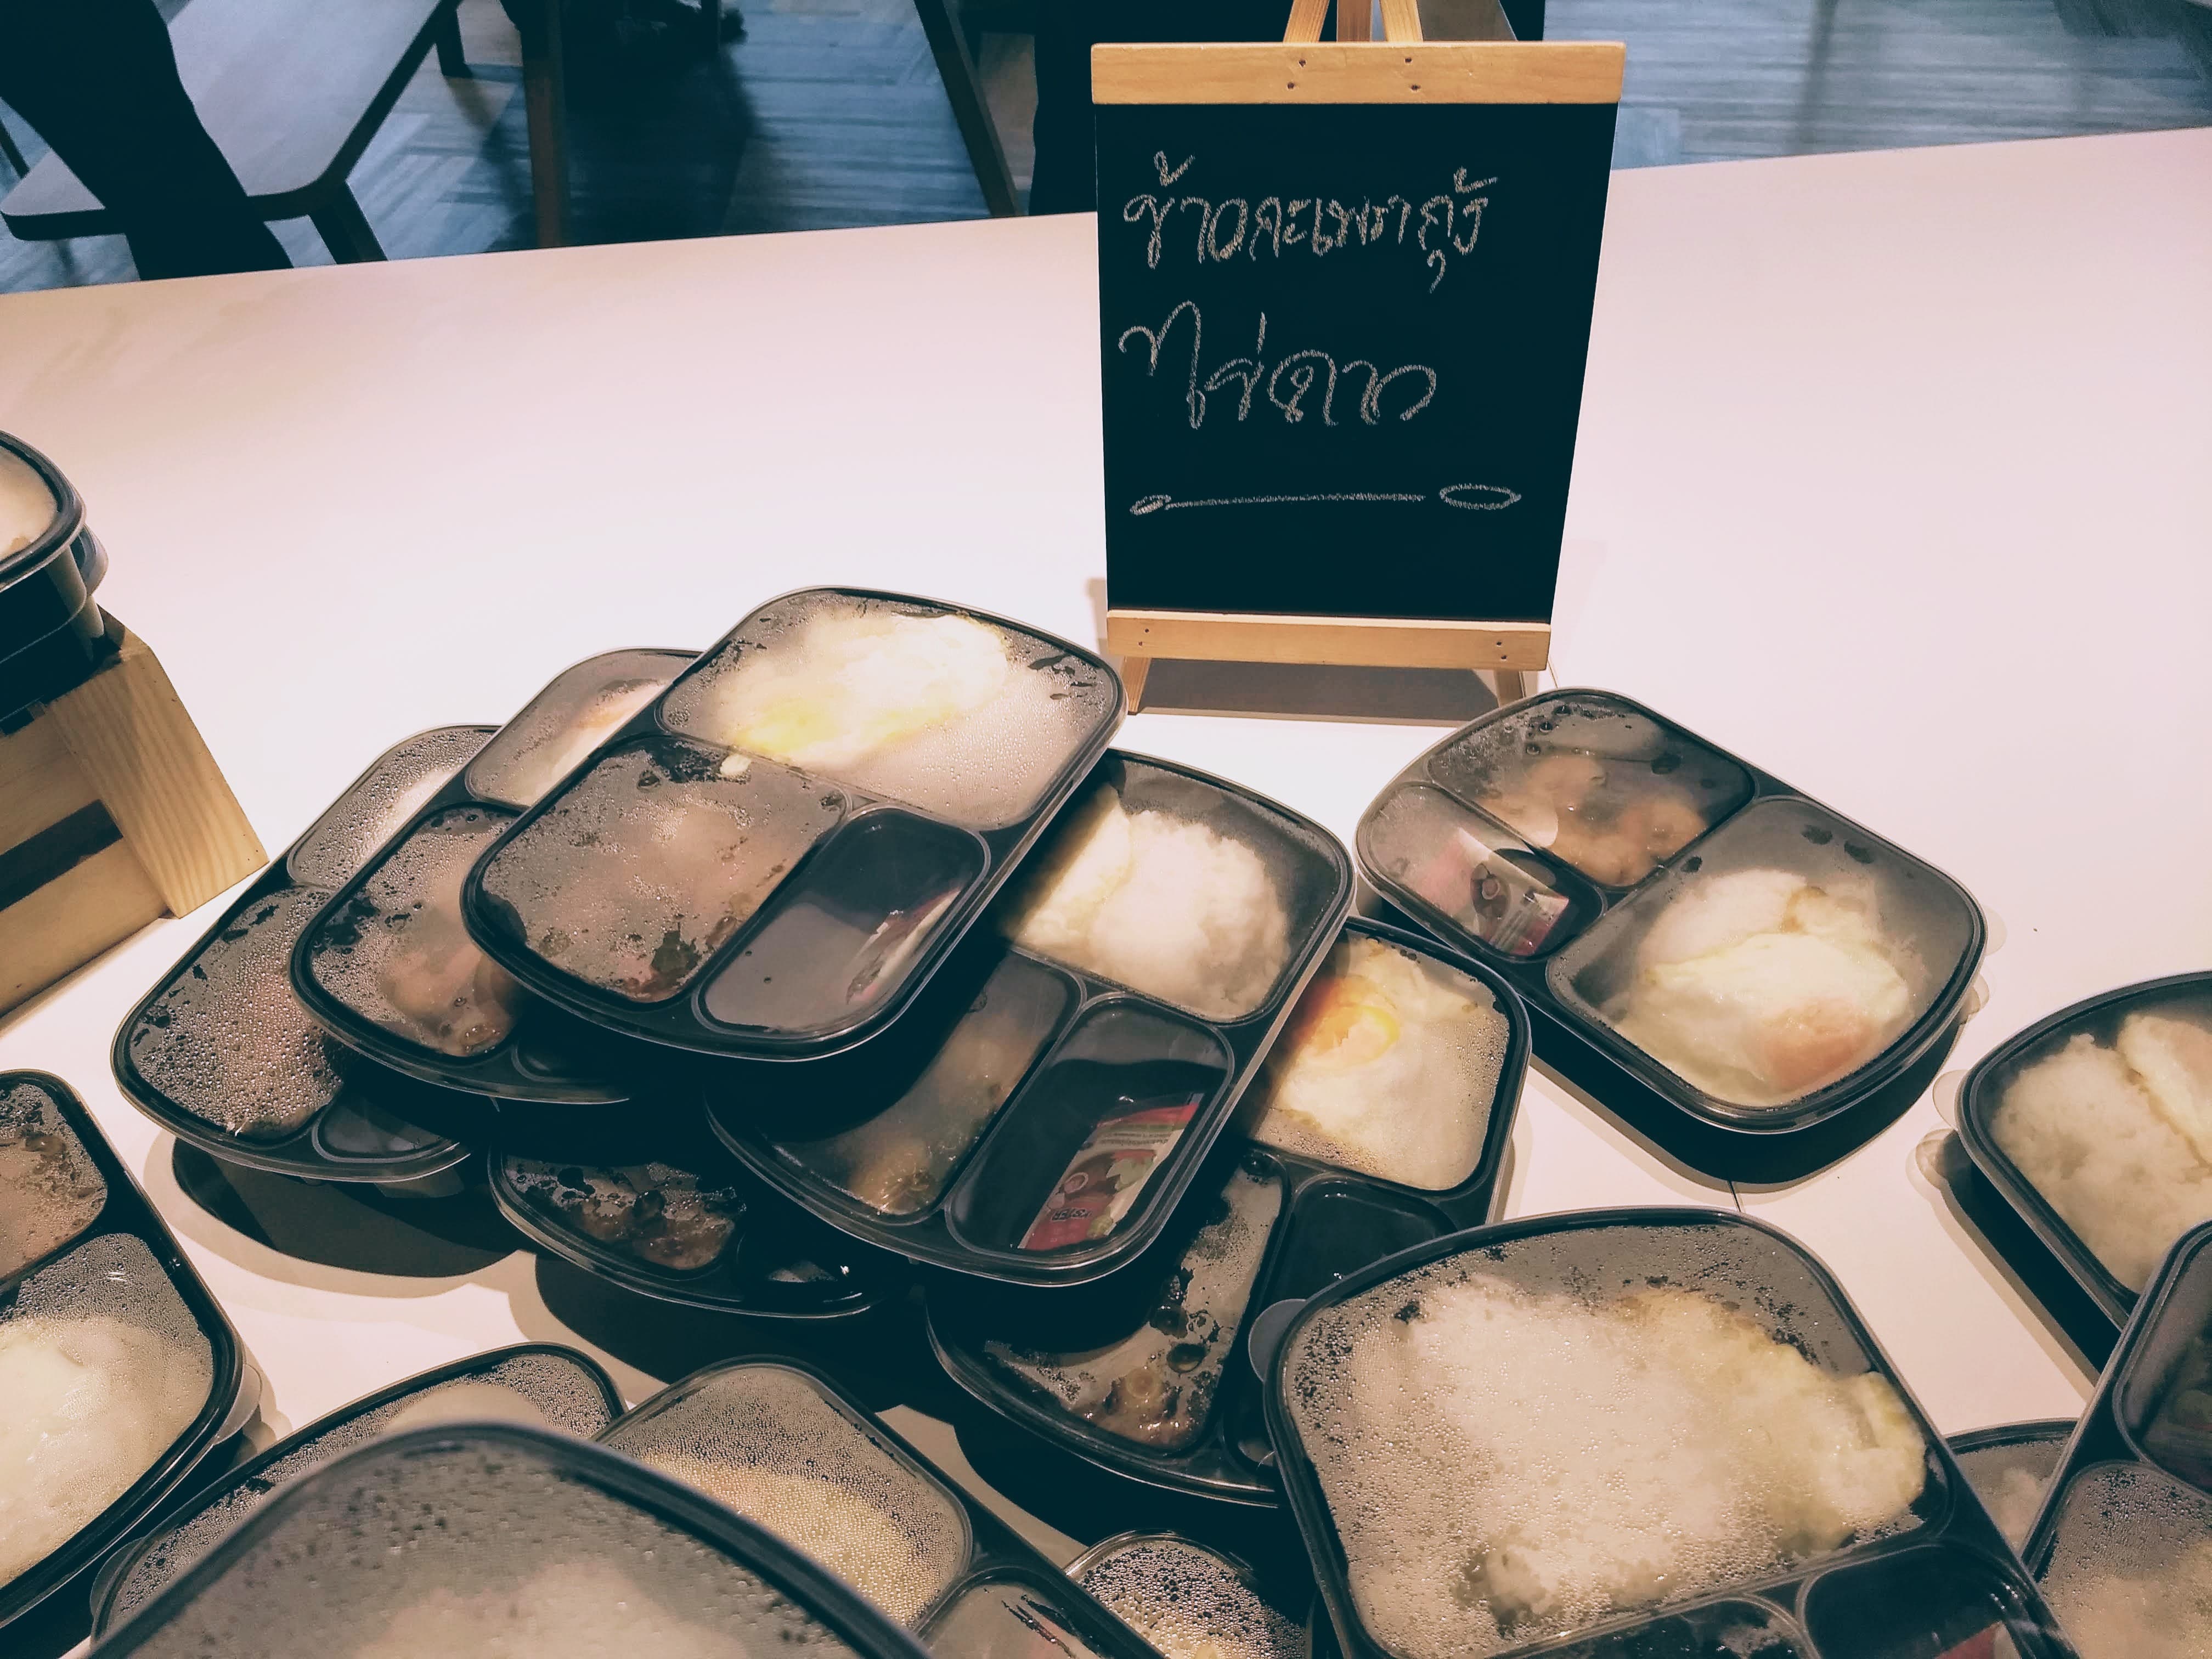 ข้าวกะเพรากุ้ง
ไข่ดาว